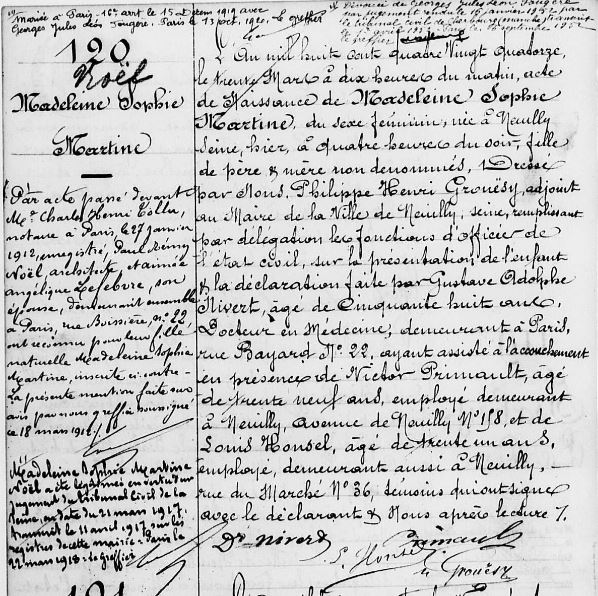 Mariée à Paris, 16e art le 15 Décem 1919 avec
Georges Jules Léon Fougère. Paris le 13 oct. 1920. Le greffier
Divorcée de Georges Jules Léon Fougère
par jugement rendu le 16 janvier 1952 par
le tribunal civil de Cherbourg (Manche) transcrit
le 1er avril 1952. septembre 1952
Le greffier
190
Noël
Madeleine Sophie
Martine
Par acte passé devant
Me Charles Henri Collin,
notaire à Paris, le 27 janvier
1912, enregistré, Paul Rémy
Noël, architecte et Aimée
Angélique Lefebvre, son
épouse, demeurant ensemble
à Paris, rue Boissière, n° 22,
ont reconnu pour leur fille
naturelle Madeleine Sophie
Martine, inscrite ci-contre.
La présente mention faite sur
avis par nous greffier soussigné,
ce 18 mars 1912
Madeleine Sophie Martine
Noël a été légitimée en vertu d'un
jugement du tribunal Civil de la
Seine, en date du 21 mars 1917.
transcrit le 11 avril 1917 sur les
registres de cette mairie. Paris le
22 mars 1918. Le Greffier
L'An mil huit cent quatre Vingt quatorze,
le trente Mars à dix heures du matin, acte
de Naissance de Madeleine Sophie
Martine, du sexe féminin, née à Neuilly
Seine, hier, à quatre heures du soir, fille
de père & mère non dénommés, Dressé
par Nous, Philippe Henri Grouësy, adjoint
au Maire de la Ville de Neuilly, Seine, remplissant
par délégation les fonctions d'officier de
l'état civil, sur la présentation de l'enfant
& la déclaration faite par Gustave Adolphe
Nivert, âgé de Cinquante huit ans,
Docteur en Médecine, demeurant à Paris,
rue Bayard N° 22, ayant assisté à l'accouchement
en présence de Victor Primault, âgé
de trente neuf ans, employé demeurant
à Neuilly, avenue de Neuilly N° 158, et de
Louis Honsel, âgé de trente un ans,
employé, demeurant aussi à Neuilly, -
rue du Marché N° 36, témoins qui ont signé
avec le déclarant & Nous après lecture /.
Dr Nivert
Primault
L. Honsel
Grouësy
191